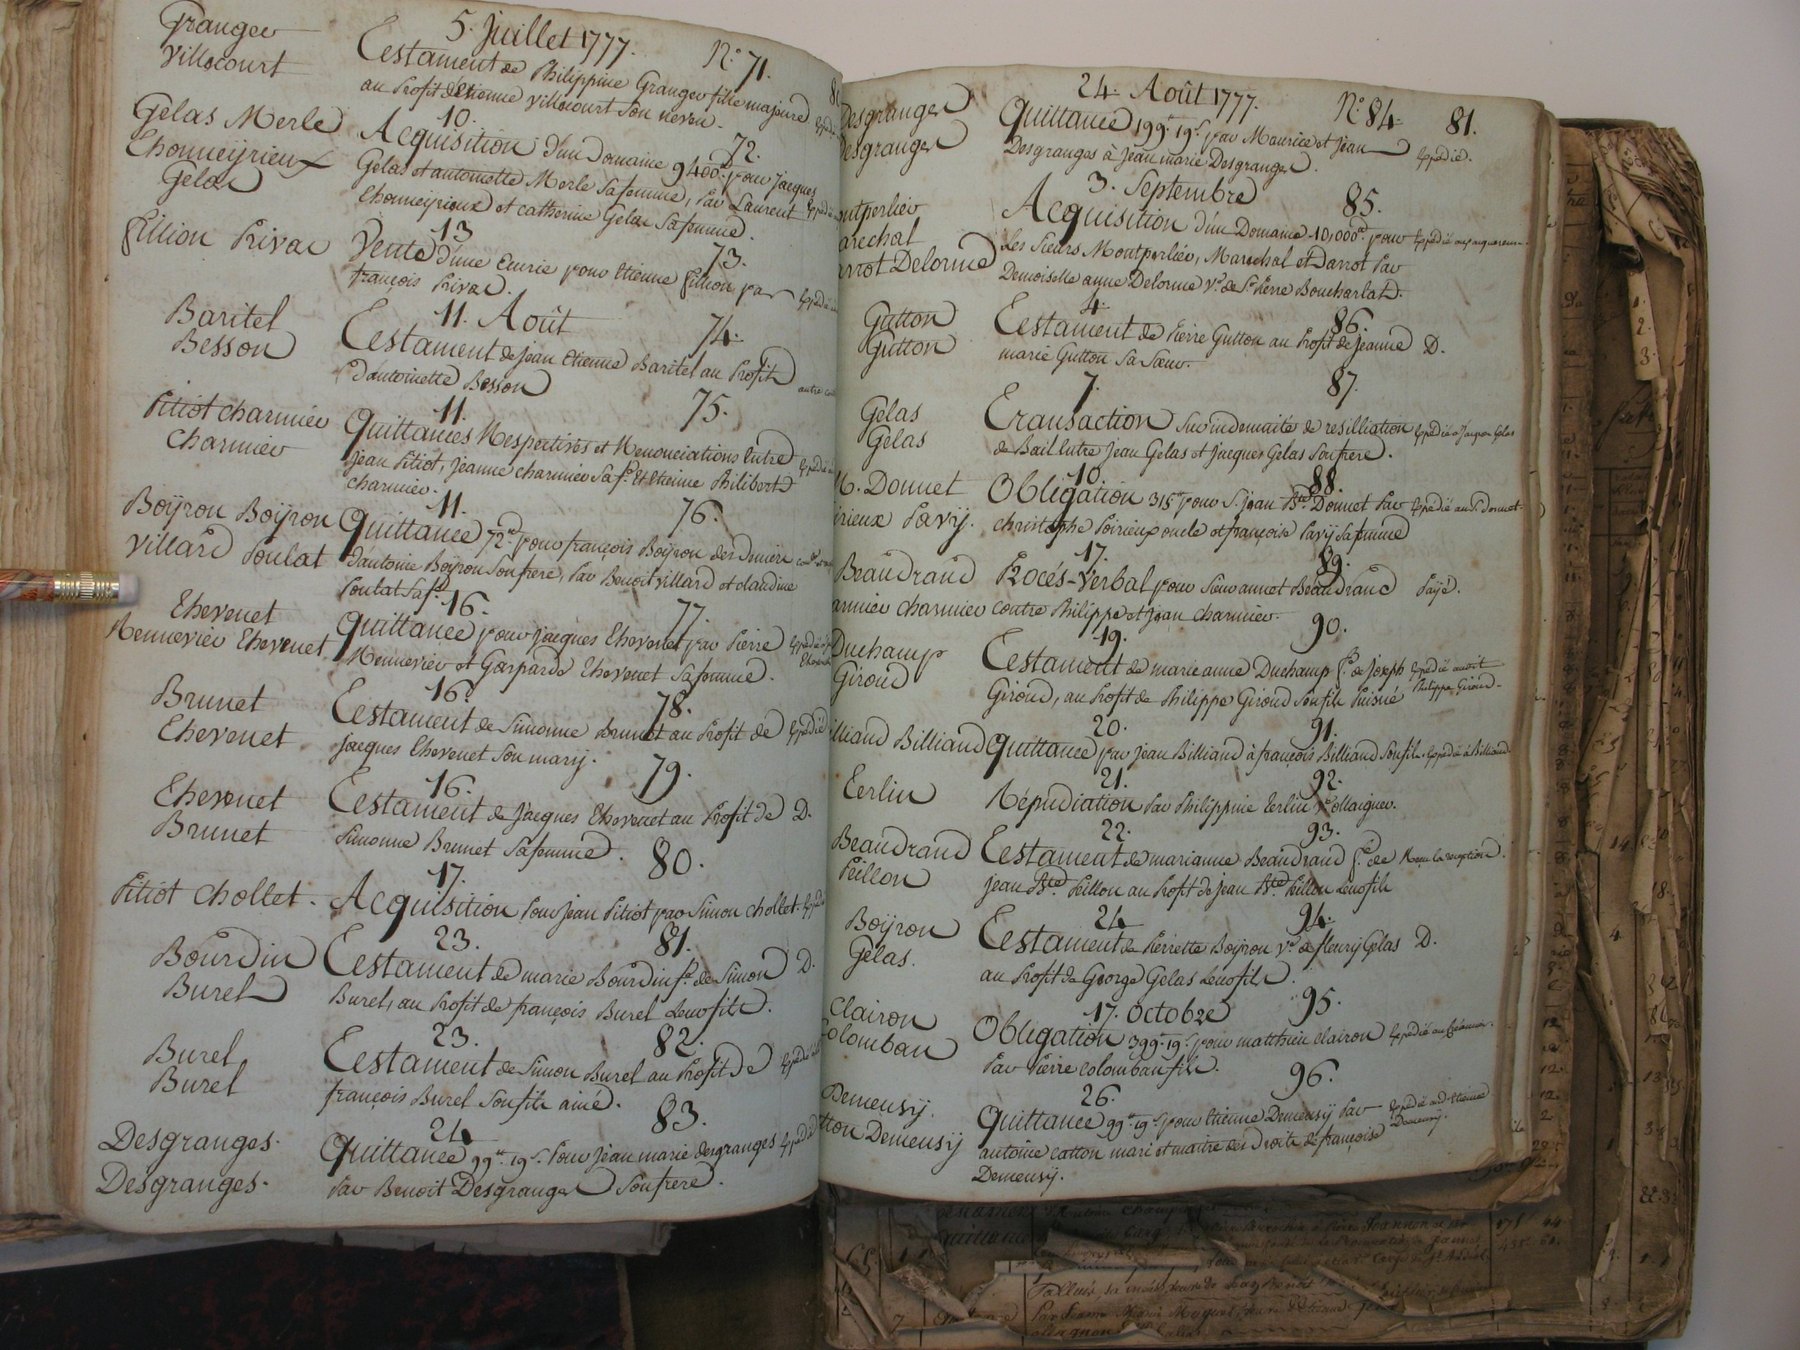 5. Juillet 1777. N.° 71.
Granger
Villecourt
Testament de Philippine Granger fille majeure
au Profit d'Etienne Villecourt Son neveu.
10. 72.
Gelas Merle
Thonneÿrieux
Gelas
Acquisition d'un Domaine 9400.# pour Jacques
Gelas et antoinette Merle Safemme, Par Laurent
Thonneÿrieux et catherine Gelas Safemme.
13 73.
fillion Privas
Vente d'une Ecurie pour Etienne fillion par
françois Privas.
11. Août 74.
Baritel
Besson
Testament de Jean Etienne Baritel au Profit
d'antoinette Besson
11. 75.
Pitiot charmier
Charmier
Quittances Respectives et Renonciations Entre
Jean Pitiot, Jeanne charmier Sa f.e Et Etienne Philibert
charmier.
11. 76.
Boÿron Boÿron
Villard Poulat
Quittance 72.# pour françois Boÿron
d'antoine Boÿron Son frere, Par Benoit Villard et claudine
Poulat Sa f.e
16. 77.
Thevenet
Rennevier Thevenet
Quittance pour Jacques Thevenet par Pierre
Rennevier et Gasparde Thevenet Safemme.
16. 78.
Brunet
Thevenet
Testament de Simonne Brunet au Profit de
Jacques Thevenet Son mary.
16. 79.
Thevenet
Brunet
Testament de Jacques Thevenet au Profit de D.
Simonne Brunet Safemme.
17. 80.
Pitiot Chollet.
Acquisition Pour Jean Pitiot par Simon Chollet.
23. 81.
Bourdin
Burel
Testament de marie Bourdin f.e de Simon D.
Burel, au Profit de françois Burel Leur fils.
23. 82.
Burel
Burel
Testament de Simon Burel au Profit de
françois Burel Son fils ainé.
24 83.
Desgranges.
Desgranges.
Quittance 99.# 19.s Pour Jean marie desgranges
Par Benoit Desgranges Son frere.
24. Août 1777. N.° 84. 81.
Desgranges
Desgranges
Quittance 199.# 19.s par Maurice et Jean Expedié.
Desgranges à Jean marie Desgranges.
3. Septembre 85.
ontperlier
arechal
arrot Delorme
Acquisition d'un Domaine 10,000.# pour Expedié aux acquereurs
Les Sieurs Montperlier, Marechal et Darrot Par
Demoiselle anne Delorme V.e de S.r Pierre Boucharlat.
4. 86.
Gutton
Gutton
Testament de Pierre Gutton au Profit de Jeanne D.
marie Gutton Sa Sœur.
7. 87.
Gelas
Gelas
Transaction Sur indemnité de resilliation Expedié a Jacques Gelas
de Bail Entre Jean Gelas et Jacques Gelas Son frere.
10. 88.
Donnet
irieux Pavÿ.
Obligation 315.# pour S.r Jean B.te Donnet Par Expedié aud. Donnet.
christophe Poirieux oncle et françoise Pavÿ Safemme
17. 89.
Beaudrand
armier charmier
Procés-Verbal pour Sieur annet Beaudrand Payé.
contre Philippe et Jean charmier.
19. 90.
Duchamp
Giroud
Testament de marie anne Duchamp f.e de Joseph Expedié audit
Philippe Giroud.
Giroud, au Profit de Philippe Giroud Son fils Puisné
20. 91.
illiand Billiand
Quittance par Jean Billiand à françois Billiand Son fils. Expedié à Billiand.
21. 92.
Terlin
Répudiation Par Philippine Terlin V.e Ollaignier.
22. 93.
Beaudrand
Peillon
Testament de marianne Beaudrand f.e de
Jean B.te Peillon au Profit de Jean B.te Peillon Leur fils
24 94.
Boÿron
Gelas.
Testament de Pierrette Boÿron V.e de fleury Gelas D.
au Profit de George Gelas Leur fils.
17. Octobre 95.
Clairon
Colomban
Obligation 399.# 19.s pour matthieu Clairon Expedié au Créancier.
Par Pierre Colomban fils.
26. 96.
Demeusÿ.
tton Demeusÿ
Quittance 99.# 19.s pour Etienne Demeusÿ Par Expedié aud. Etienne
Demeusÿ.
antoine cotton mari et maitre des Droits de françoise
Demeusÿ.